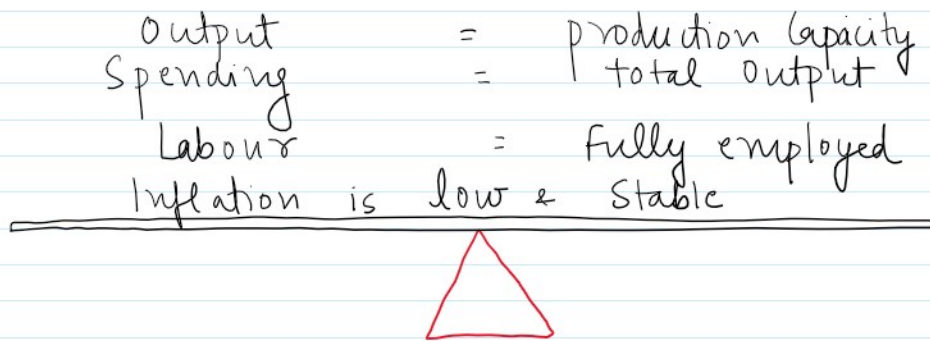 Output = production Capacity
Spending = total Output
Labour = Fully employed
Inflation is low & Stable